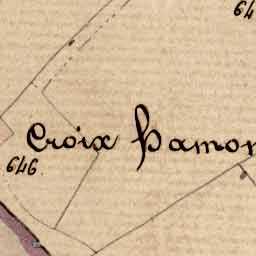 64
Croix Hamon
646.